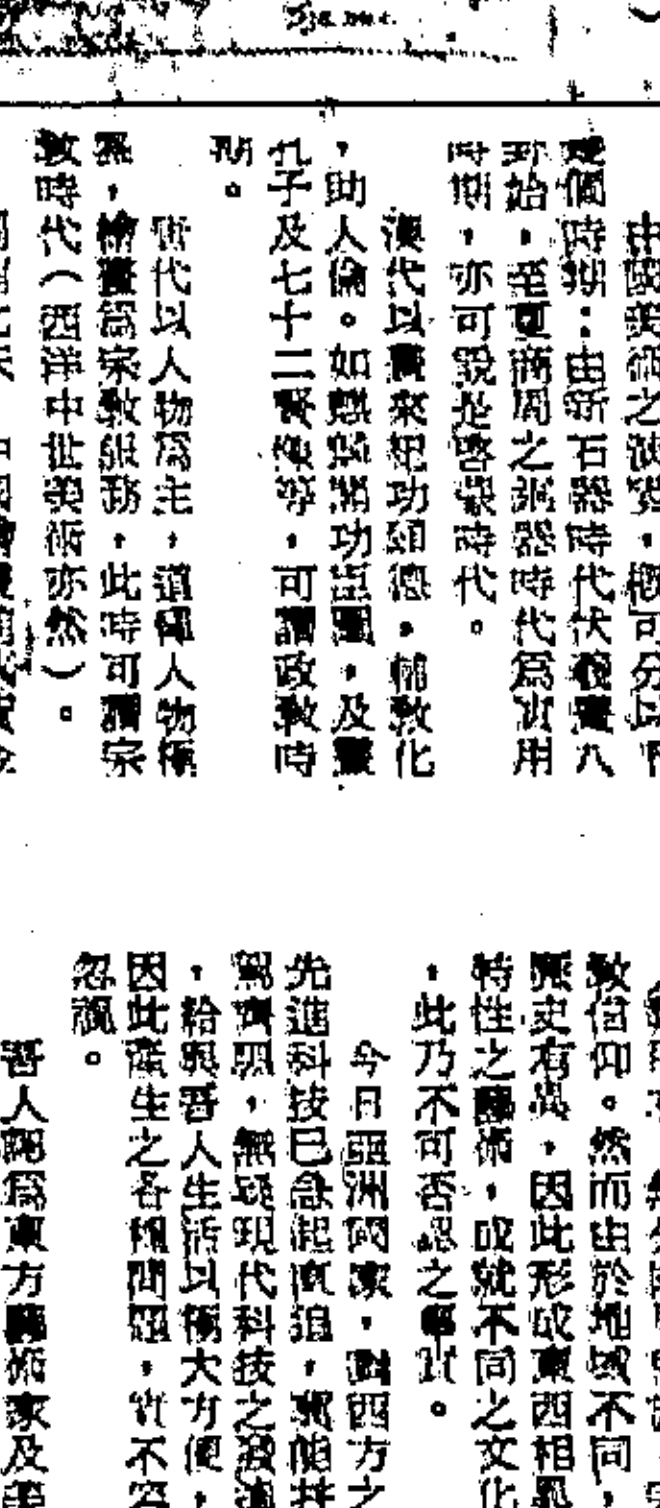 中國美術之演變,概可分以下
幾個時期:由新石器時代伏羲畫八
卦始,至夏商周之銅器時代爲實用
時期,亦可說是啓蒙時代。
漢代以畫來紀功頌德,輔敎化
,助人倫。如麒麟閣功臣圖,及畫
孔子及七十二賢像等,可謂政敎時
期。
唐代以人物爲主,道釋人物極
,繪畫爲宗敎服務,此時可謂宗
敎時代(西洋中世美術亦然)。
敎信仰。然而由於地域不同,
歷史有異,因此形成東西相異
特性之藝術,成就不同之文化
,此乃不可否認之事實。
今日亞洲國家,對西方之
先進科技已急起直追,冀能並
駕齊驅,無疑現代科技之發達
,給與吾人生活以極大方便,
因此產生之各種問題,實不容
忽視。
吾人認爲東方藝術家及